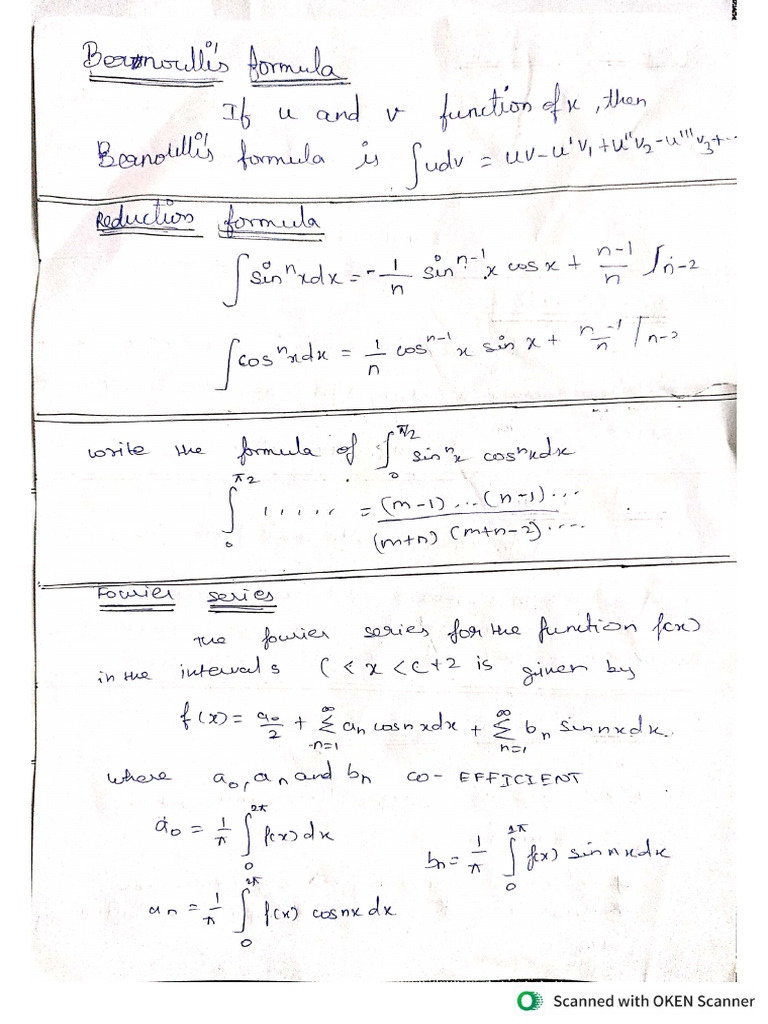 Bernoulli's formula
If u and v function of x, then
Bernoulli's formula is ∫udv = uv - u'v₁ + u''v₂ - u'''v₃ + ...
Reduction formula
∫sinⁿxdx = -1/n sinⁿ⁻¹x cosx + n-1/n Iₙ₋₂
∫cosⁿxdx = 1/n cosⁿ⁻¹x sinx + n-1/n Iₙ₋₂
write the formula of ∫₀^π/2 sinⁿx cosⁿxdx
∫₀^π2 ..... = (m-1)...(n-1)... / (m+n) (m+n-2).....
Fourier series
The fourier series for the function f(x)
in the intervals C < x < c+2 is given by
f(x) = a₀/2 + ∞Σn=1 aₙ cosnxdx + ∞Σn=1 bₙ sinnxdx.
where a₀, aₙ and bₙ co-EFFICIENT
a₀ = 1/π ∫₀^2π f(x) dx
bₙ = 1/π ∫₀^2π f(x) sinnxdx
aₙ = 1/π ∫₀^2π f(x) cosnxdx
Scanned with OKEN Scanner